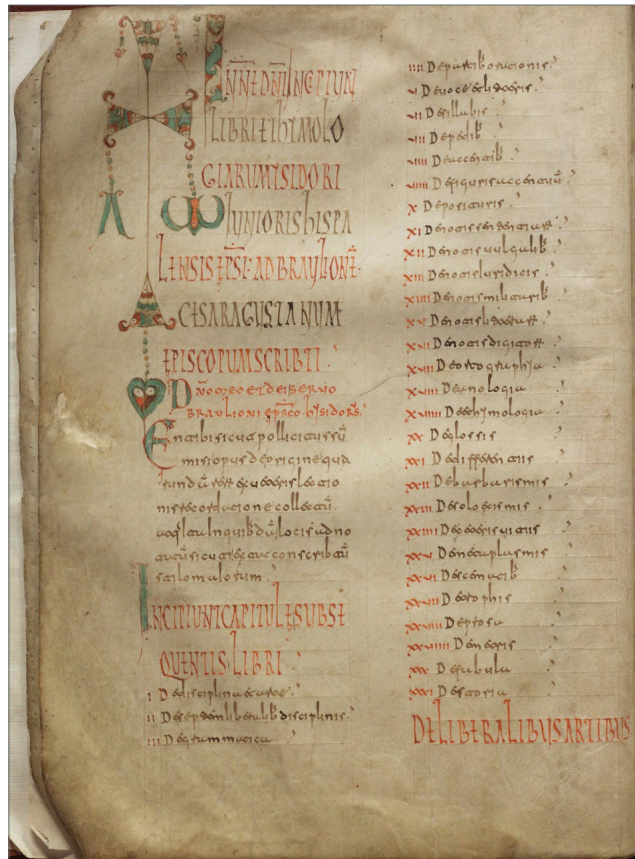 INCIPIUNT
LIBRI ETHIMOLO
GIARUM ISIDORI
IUNIORIS HISPA
LENSIS EPSI AD BRAULIONE
CESARAGUSTANUM
EPISCOPUM SCRIBTI
DNO MEO ET DEI SERVO
BRAULIONI EPSCO HISIDORS
En tibi sicut pollicitus su
misi opus de origine qua
rundu reru ex veteris lectio
nis recordatione collectu
conscribtu
stilo maiorum
INCIPIUNT CAPITULE SUBSE
QUENTIS LIBRI
I De disciplina et arte
II De septem liberalib disciplinis
III De grammatica
IIII De partib orationis
V De voce et litteris
VI De sillabis
VII De pedib
VIII De accentib
VIIII De figuris accentuu
X De posituris
XI De notis sententiaru
XII De notis vulgalib
XIII De notis iuridicis
XIIII De notis militarib
XV De notis litteraru
XVI De notis digitoru
XVII De ortographia
XVIII De analogia
XVIIII De ethimologia
XX De glossis
XXI De differentiis
XXII De barbarismis
XXIII De solecismis
XXIIII De ceteris vitiis
XXV De metaplasmis
XXVI De scematib
XXVII De trophis
XXVIII De prosa
XXVIIII De metris
XXX De fabula
XXXI De storia
DE LIBERALIBUS ARTIBUS